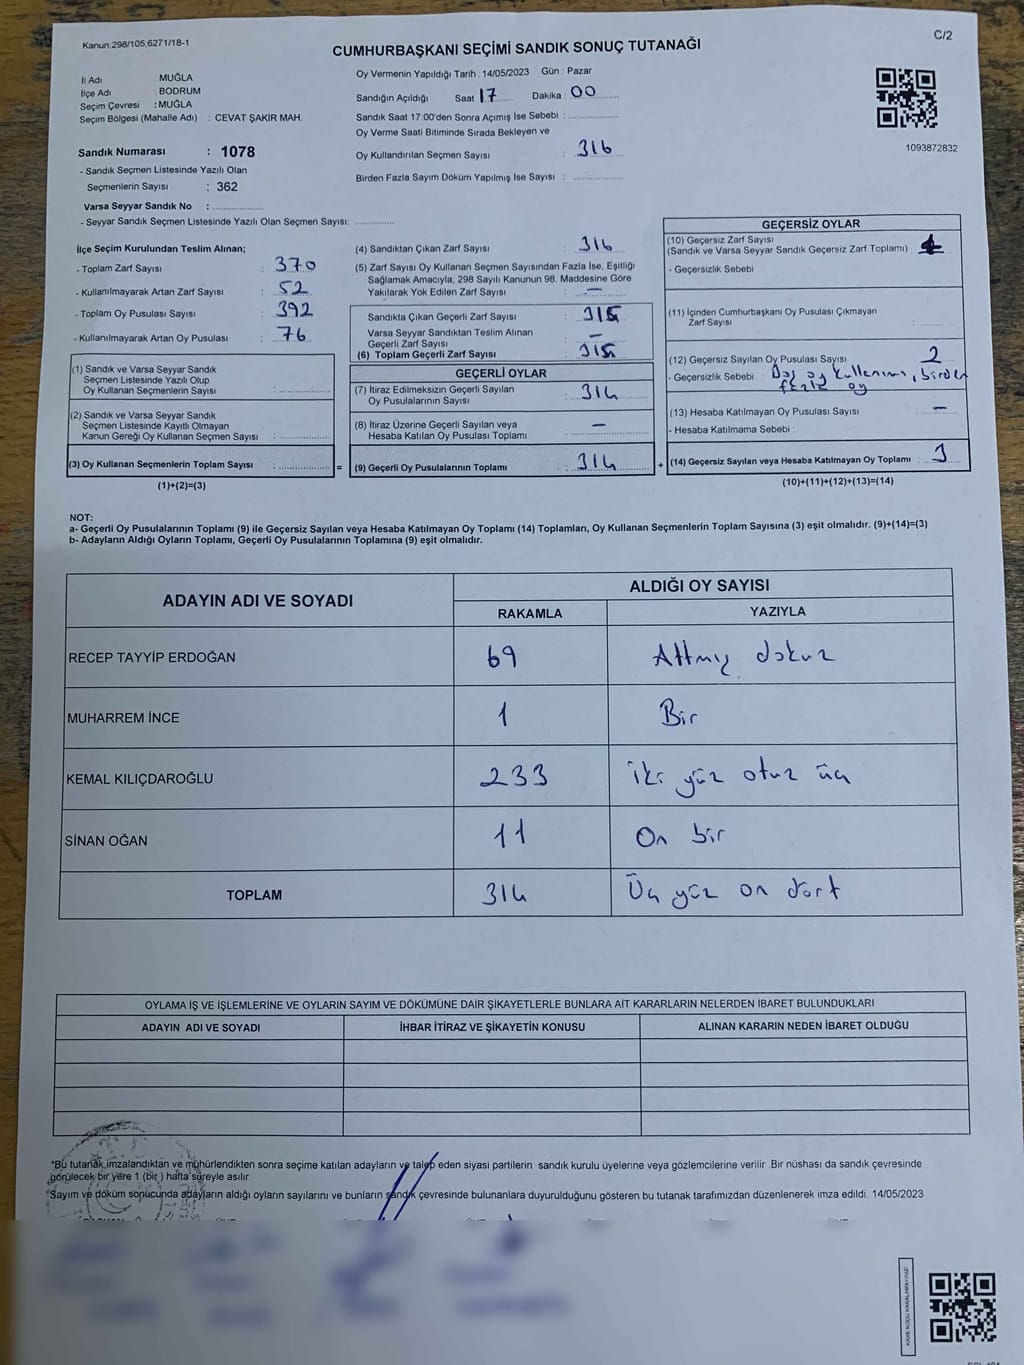 Kanun:298/105,6271/18-1
C/2
CUMHURBAŞKANI SEÇİMİ SANDIK SONUÇ TUTANAĞI
İl Adı : MUĞLA
İlçe Adı : BODRUM
Seçim Çevresi : MUĞLA
Seçim Bölgesi (Mahalle Adı) : CEVAT ŞAKİR MAH.
Sandık Numarası : 1078
- Sandık Seçmen Listesinde Yazılı Olan
Seçmenlerin Sayısı : 362
Varsa Seyyar Sandık No :
- Seyyar Sandık Seçmen Listesinde Yazılı Olan Seçmen Sayısı:
Oy Vermenin Yapıldığı Tarih : 14/05/2023 Gün : Pazar
Sandığın Açıldığı Saat 17 Dakika : 00
Sandık Saat 17:00'den Sonra Açımış İse Sebebi :
Oy Verme Saati Bitiminde Sırada Bekleyen ve
Oy Kullandırılan Seçmen Sayısı : 316
Birden Fazla Sayım Döküm Yapılmış İse Sayısı :
1093872832
İlçe Seçim Kurulundan Teslim Alınan;
- Toplam Zarf Sayısı : 370
- Kullanılmayarak Artan Zarf Sayısı : 52
- Toplam Oy Pusulası Sayısı : 392
- Kullanılmayarak Artan Oy Pusulası : 76
(1) Sandık ve Varsa Seyyar Sandık
Seçmen Listesinde Yazılı Olup
Oy Kullanan Seçmenlerin Sayısı :
(2) Sandık ve Varsa Seyyar Sandık
Seçmen Listesinde Kayıtlı Olmayan
Kanun Gereği Oy Kullanan Seçmen Sayısı :
(3) Oy Kullanan Seçmenlerin Toplam Sayısı :
(1)+(2)=(3)
=
(4) Sandıktan Çıkan Zarf Sayısı : 316
(5) Zarf Sayısı Oy Kullanan Seçmen Sayısından Fazla İse, Eşitliği
Sağlamak Amacıyla, 298 Sayılı Kanunun 98. Maddesine Göre
Yakılarak Yok Edilen Zarf Sayısı : —
Sandıkta Çıkan Geçerli Zarf Sayısı : 315
Varsa Seyyar Sandıktan Teslim Alınan
Geçerli Zarf Sayısı : —
(6) Toplam Geçerli Zarf Sayısı : 315
GEÇERLİ OYLAR
(7) İtiraz Edilmeksizin Geçerli Sayılan
Oy Pusulalarının Sayısı : 314
(8) İtiraz Üzerine Geçerli Sayılan veya
Hesaba Katılan Oy Pusulası Toplamı : —
(9) Geçerli Oy Pusulalarının Toplamı : 314
+
GEÇERSİZ OYLAR
(10) Geçersiz Zarf Sayısı
(Sandık ve Varsa Seyyar Sandık Geçersiz Zarf Toplamı) : 1
- Geçersizlik Sebebi
(11) İçinden Cumhurbaşkanı Oy Pusulası Çıkmayan
Zarf Sayısı :
(12) Geçersiz Sayılan Oy Pusulası Sayısı : 2
- Geçersizlik Sebebi : Boş oy kullanımı, birden
fazla oy
(13) Hesaba Katılmayan Oy Pusulası Sayısı : —
- Hesaba Katılmama Sebebi :
(14) Geçersiz Sayılan veya Hesaba Katılmayan Oy Toplamı : 3
(10)+(11)+(12)+(13)=(14)
NOT:
a- Geçerli Oy Pusulalarının Toplamı (9) ile Geçersiz Sayılan veya Hesaba Katılmayan Oy Toplamı (14) Toplamları, Oy Kullanan Seçmenlerin Toplam Sayısına (3) eşit olmalıdır. (9)+(14)=(3)
b- Adayların Aldığı Oyların Toplamı, Geçerli Oy Pusulalarının Toplamına (9) eşit olmalıdır.
ADAYIN ADI VE SOYADI
ALDIĞI OY SAYISI
RAKAMLA YAZIYLA
RECEP TAYYİP ERDOĞAN 69 Altmış dokuz
MUHARREM İNCE 1 Bir
KEMAL KILIÇDAROĞLU 233 iki yüz otuz üç
SİNAN OĞAN 11 On bir
TOPLAM 314 Üç yüz on dört
OYLAMA İŞ VE İŞLEMLERİNE VE OYLARIN SAYIM VE DÖKÜMÜNE DAİR ŞİKAYETLERLE BUNLARA AİT KARARLARIN NELERDEN İBARET BULUNDUKLARI
ADAYIN ADI VE SOYADI İHBAR İTİRAZ VE ŞİKAYETİN KONUSU ALINAN KARARIN NEDEN İBARET OLDUĞU
*Bu tutanak imzalandıktan ve mühürlendikten sonra seçime katılan adayların ve talep eden siyasi partilerin sandık kurulu üyelerine veya gözlemcilerine verilir .Bir nüshası da sandık çevresinde
görülecek bir yere 1 (bir) hafta süreyle asılır.
*Sayım ve döküm sonucunda adayların aldığı oyların sayılarını ve bunların sandık çevresinde bulunanlara duyurulduğunu gösteren bu tutanak tarafımızdan düzenlenerek imza edildi. 14/05/2023